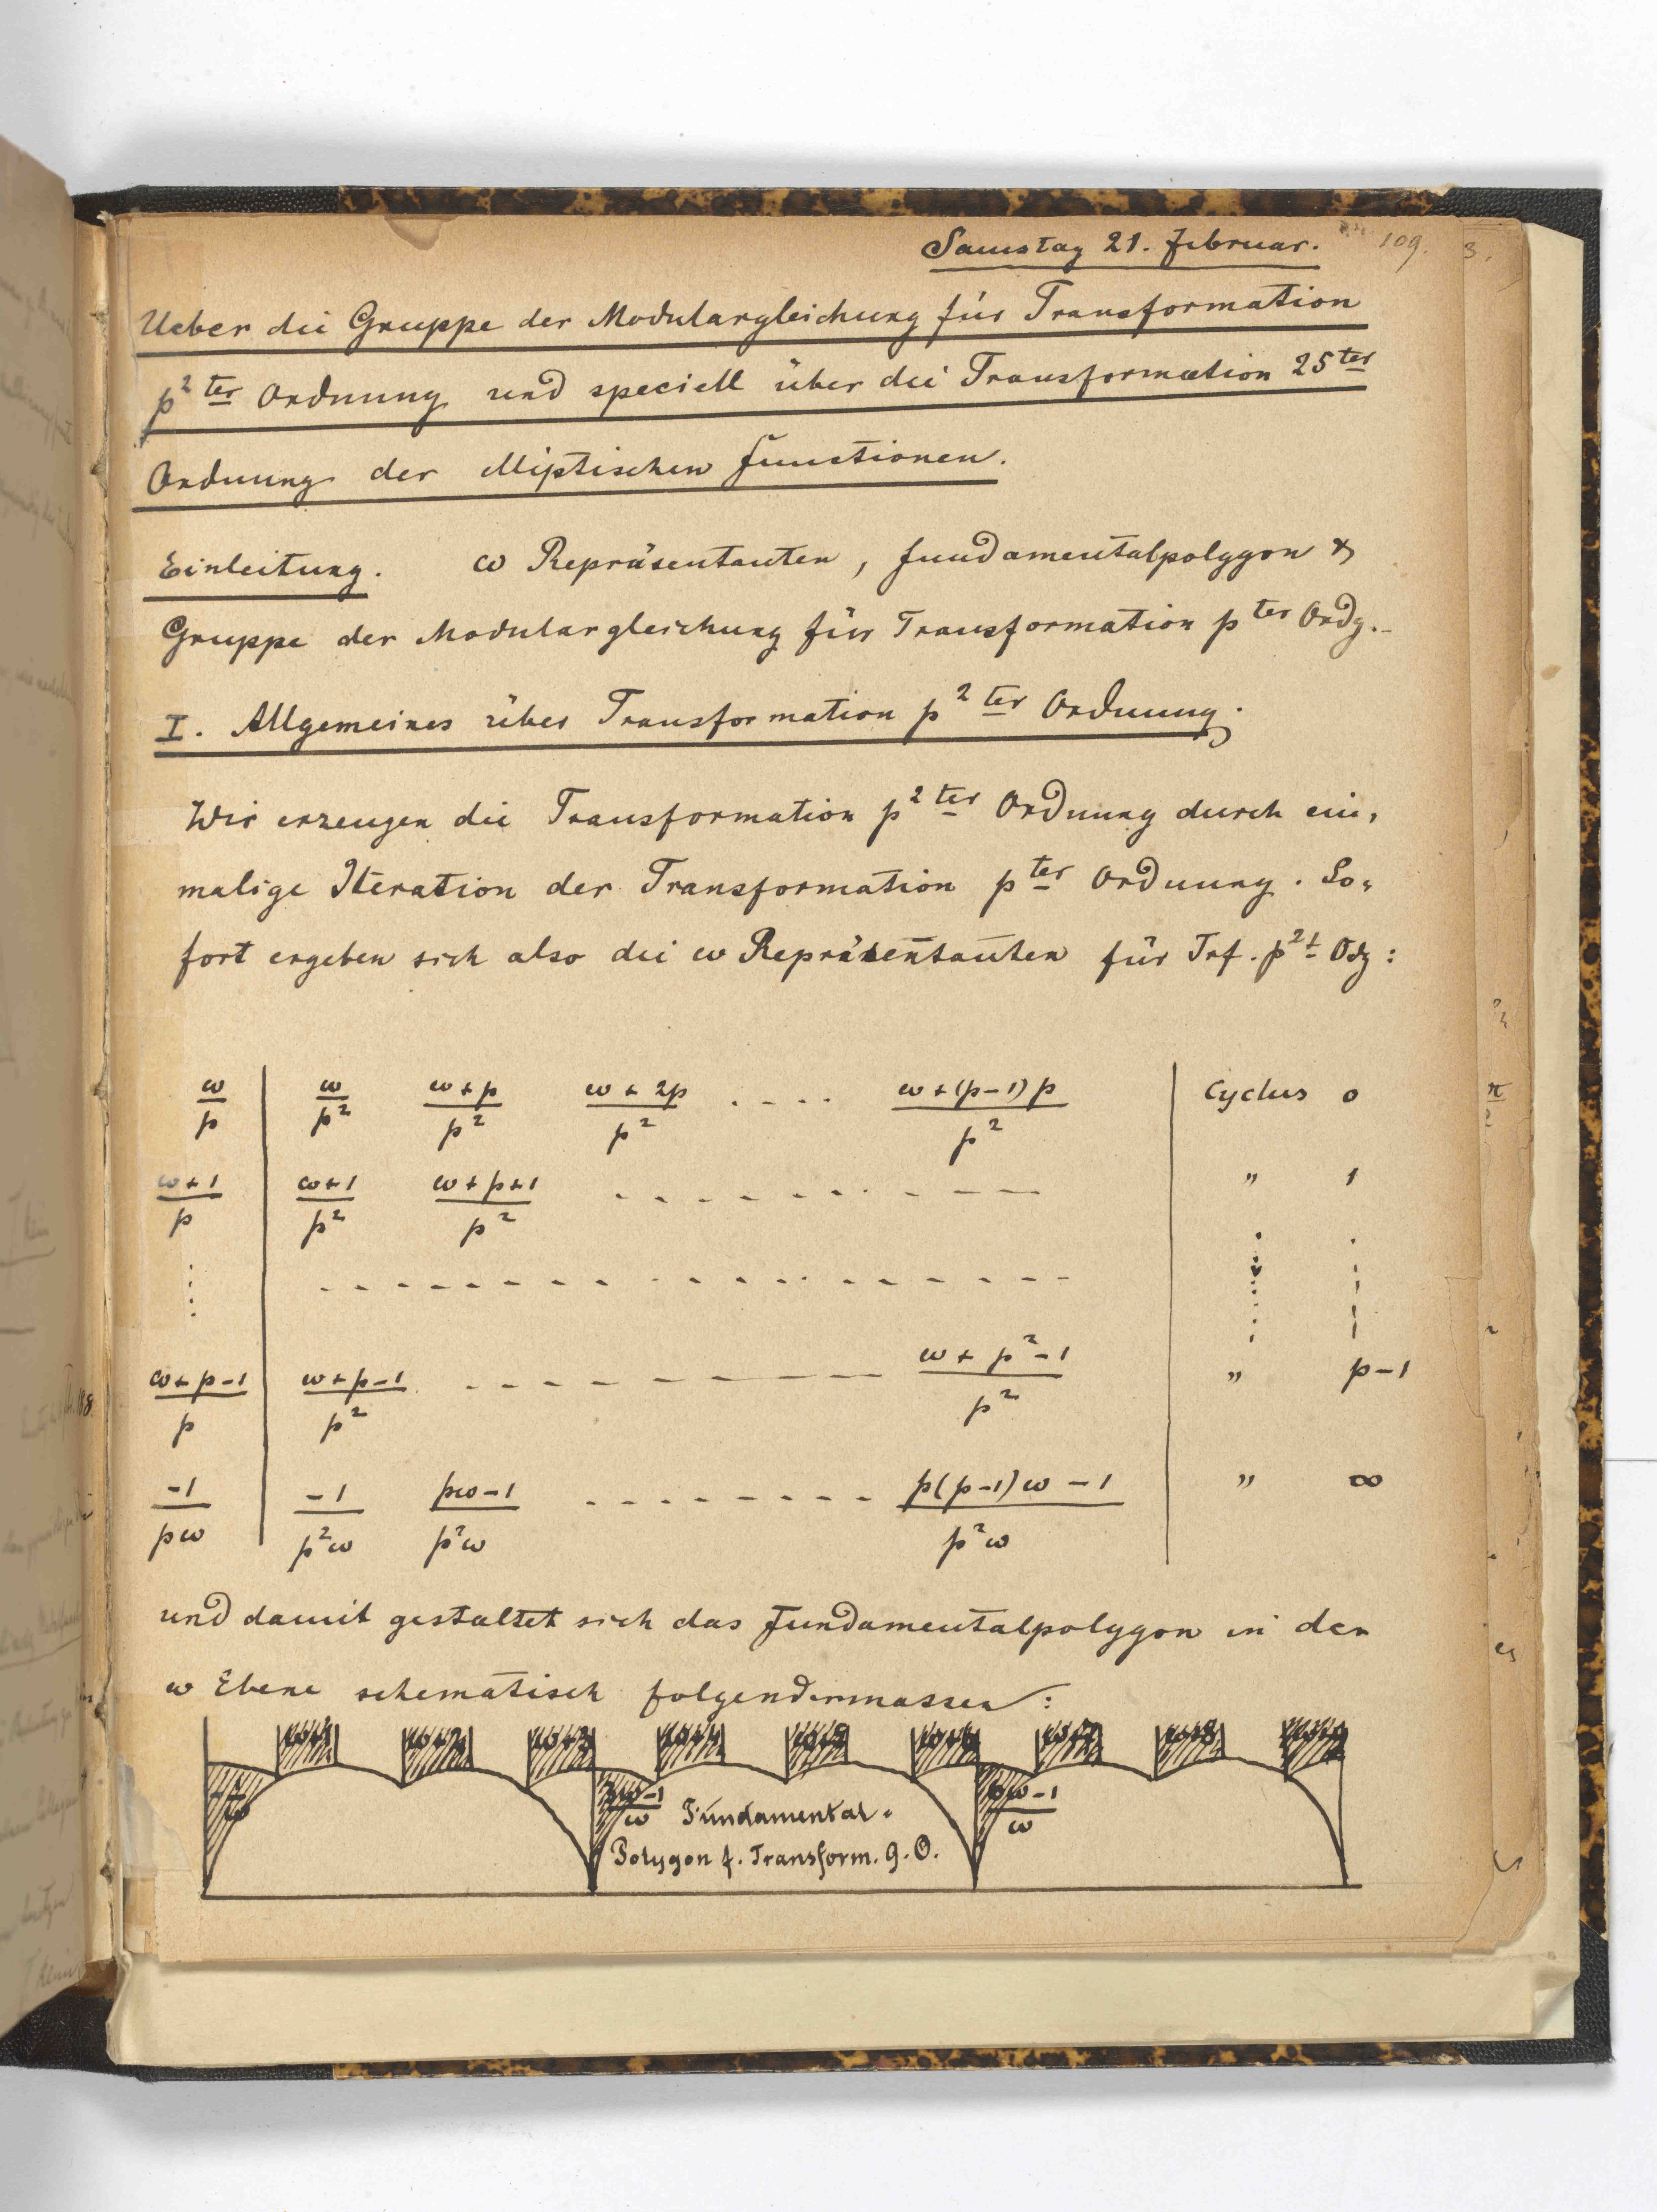 Samstag 21. Februar. 109.
Ueber die Gruppe der Modulargleichung für Transformation
p² ter Ordnung und speciell über die Transformation 25 ter
Ordnung der elliptischen Functionen.
Einleitung. ω Repräsentanten, Fundamentalpolygon &
Gruppe der Modulargleichung für Transformation p ter Ordg.
I. Allgemeines über Transformation p² ter Ordnung.
Wir erzeugen die Transformation p² ter Ordnung durch ein,
malige Iteration der Transformation p ter Ordnung. So,
fort ergeben sich also die ω Repräsentanten für Trf. p² t Odg:
ω/p | ω/p² (ω+p)/p² (ω+2p)/p² .... (ω+(p-1)p)/p² | Cyclus 0
(ω+1)/p | (ω+1)/p² (ω+p+1)/p² .......... | " 1
(ω+p-1)/p | (ω+p-1)/p² .......... (ω+p²-1)/p² | " p-1
-1/pω | -1/p²ω (pω-1)/p²ω ........ (p(p-1)ω-1)/p²ω | " ∞
und damit gestaltet sich das Fundamentalpolygon in der
ω Ebene schematisch folgendermassen:
ω+1 ω+2 ω+3 ω+4 ω+5 ω+6 ω+7 ω+8
(3ω-1)/ω Fundamental- (6ω-1)/ω
Polygon f. Transform. 9. O.